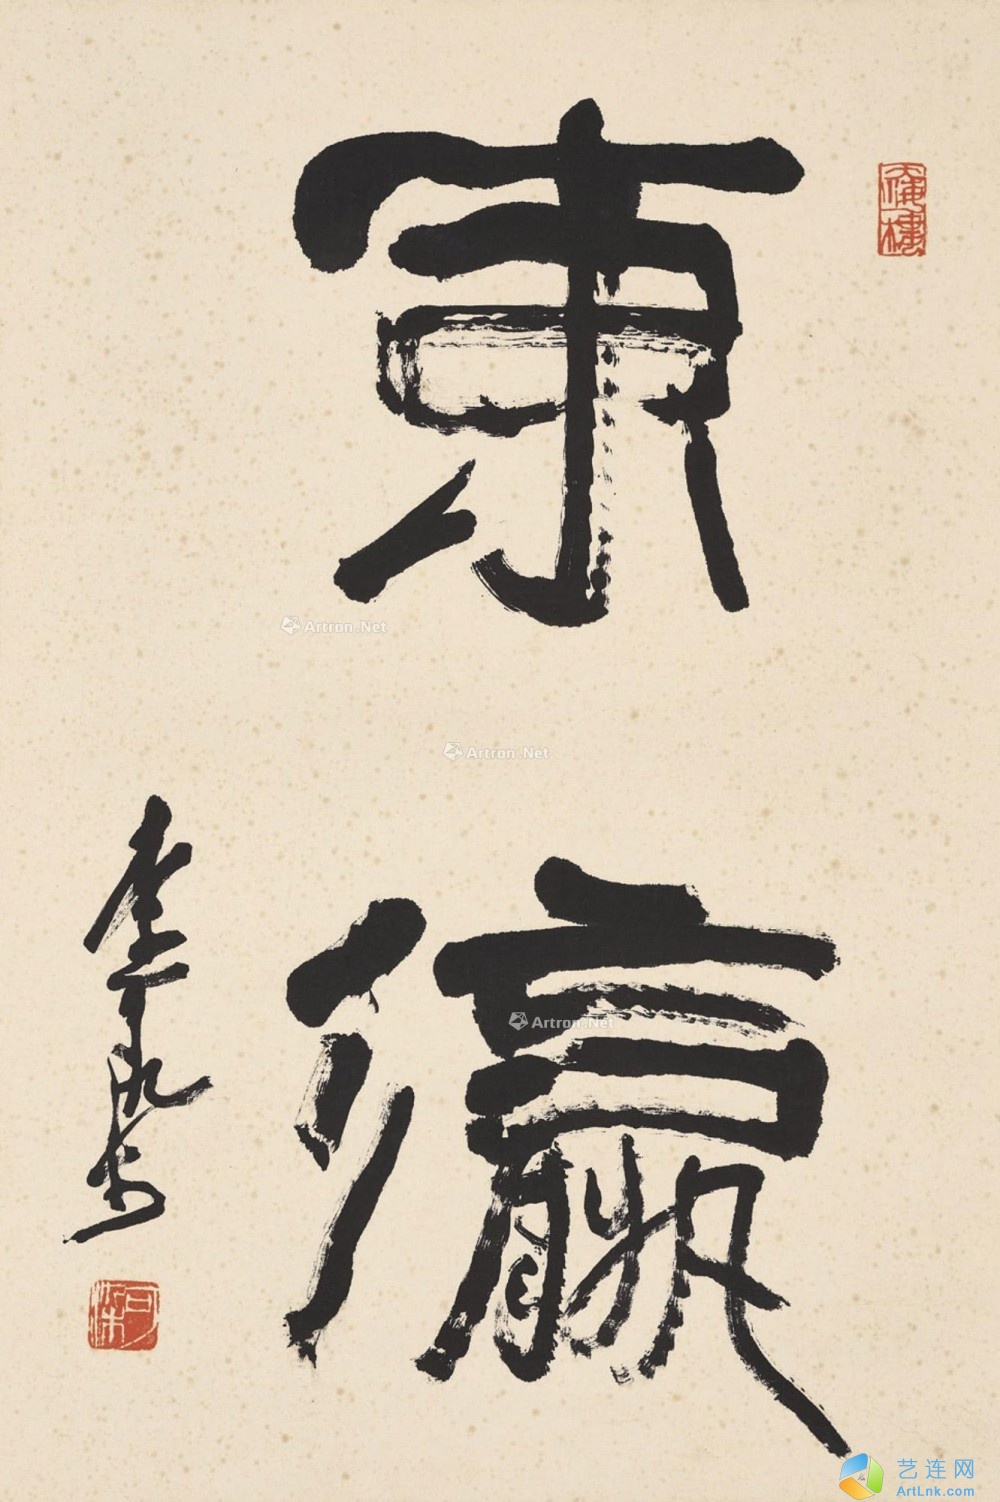 東瀛
李可染
可染
Artron.Net
Artron.Net
Artron.Net
艺连网
ArtLnk.com